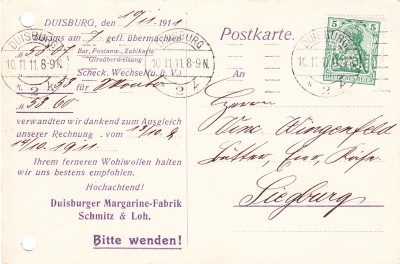 DUISBURG, den 10/11 1911
Postkarte.
uns am 7 gefl. übermachten
M 53.07 Bar, Postanw., Zahlkarte
Giroüberweisung
Scheck, Wechsel (u. ü. V.)
für
M 53.60
verwandten wir dankend zum Ausgleich
unserer Rechnung . vom 13/10 &
14/10. 1911.
Ihrem ferneren Wohlwollen halten
wir uns bestens empfohlen.
Hochachtend!
Duisburger Margarine-Fabrik
Schmitz & Loh.
Bitte wenden!
DUISBURG
10.11.11.8-9N.
* 2 k
DUISBURG
10.11.11.8-9N.
* 2 k
DUISBURG
5 5
DEUTSCHES REICH
An
Herrn
Wm. Wingenfeld
Butter, Eier, Käse
Siegburg